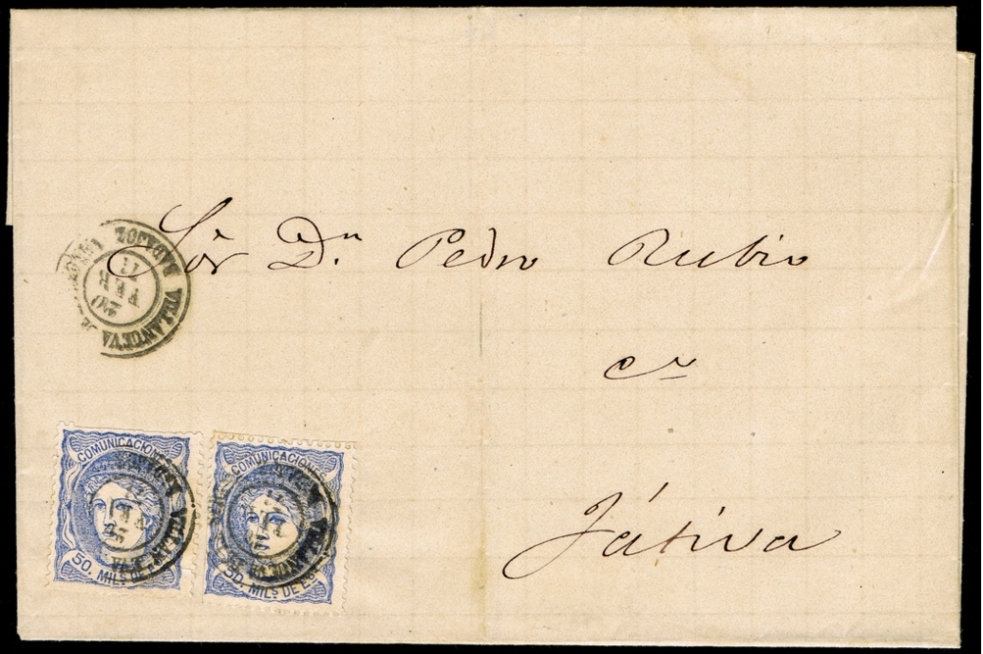 Sór Dn Pedro Rubio
en
Játiva
VILLANUEVA
BADAJOZ
20
FEB
71
COMUNICACIONES
50. MILS DE
COMUNICACIONES
50. MILS DE ESC